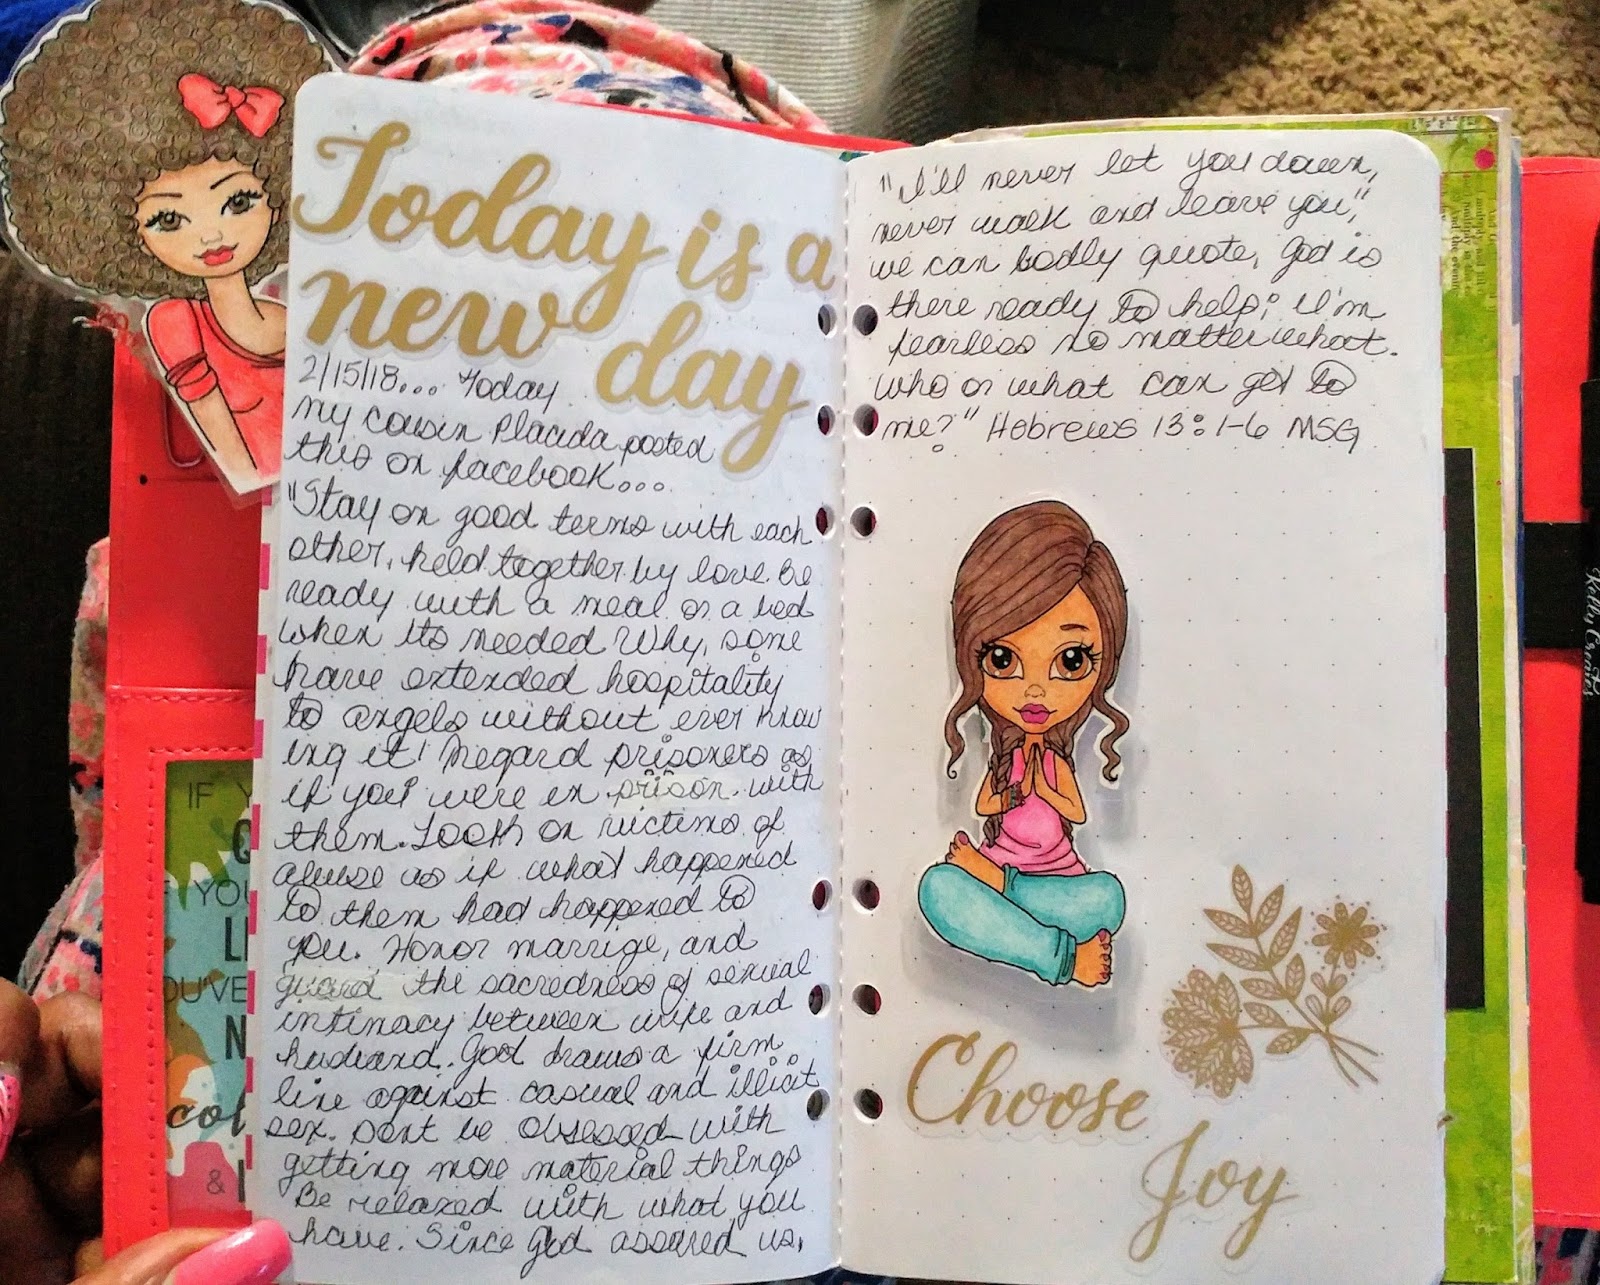 Today is a
new day
2/15/18... Today
my cousin Placida posted
this on facebook...
"Stay on good terms with each
other, held together by love. Be
ready with a meal or a bed
when its needed Why, some
have extended hospitality
to angels without ever know
ing it! Regard prisoners as
if you were in prison with
them. Look on victims of
abuse as if what happened
to them had happened to
you. Honor marrige, and
guard the sacredness of sexual
intimacy between wife and
husband. God draws a firm
line against casual and illicit
sex. Dont be obsessed with
getting more material things
Be relaxed with what you
have. Since God assured us,
"I'll never let you down,
never walk and leave you",
we can bodly quote, God is
there ready to help; I'm
fearless no matter what.
who or what can get to
me?" Hebrews 13:1-6 MSG
Choose
Joy
IF
YOU
YOU'VE
&
Kelly Creates